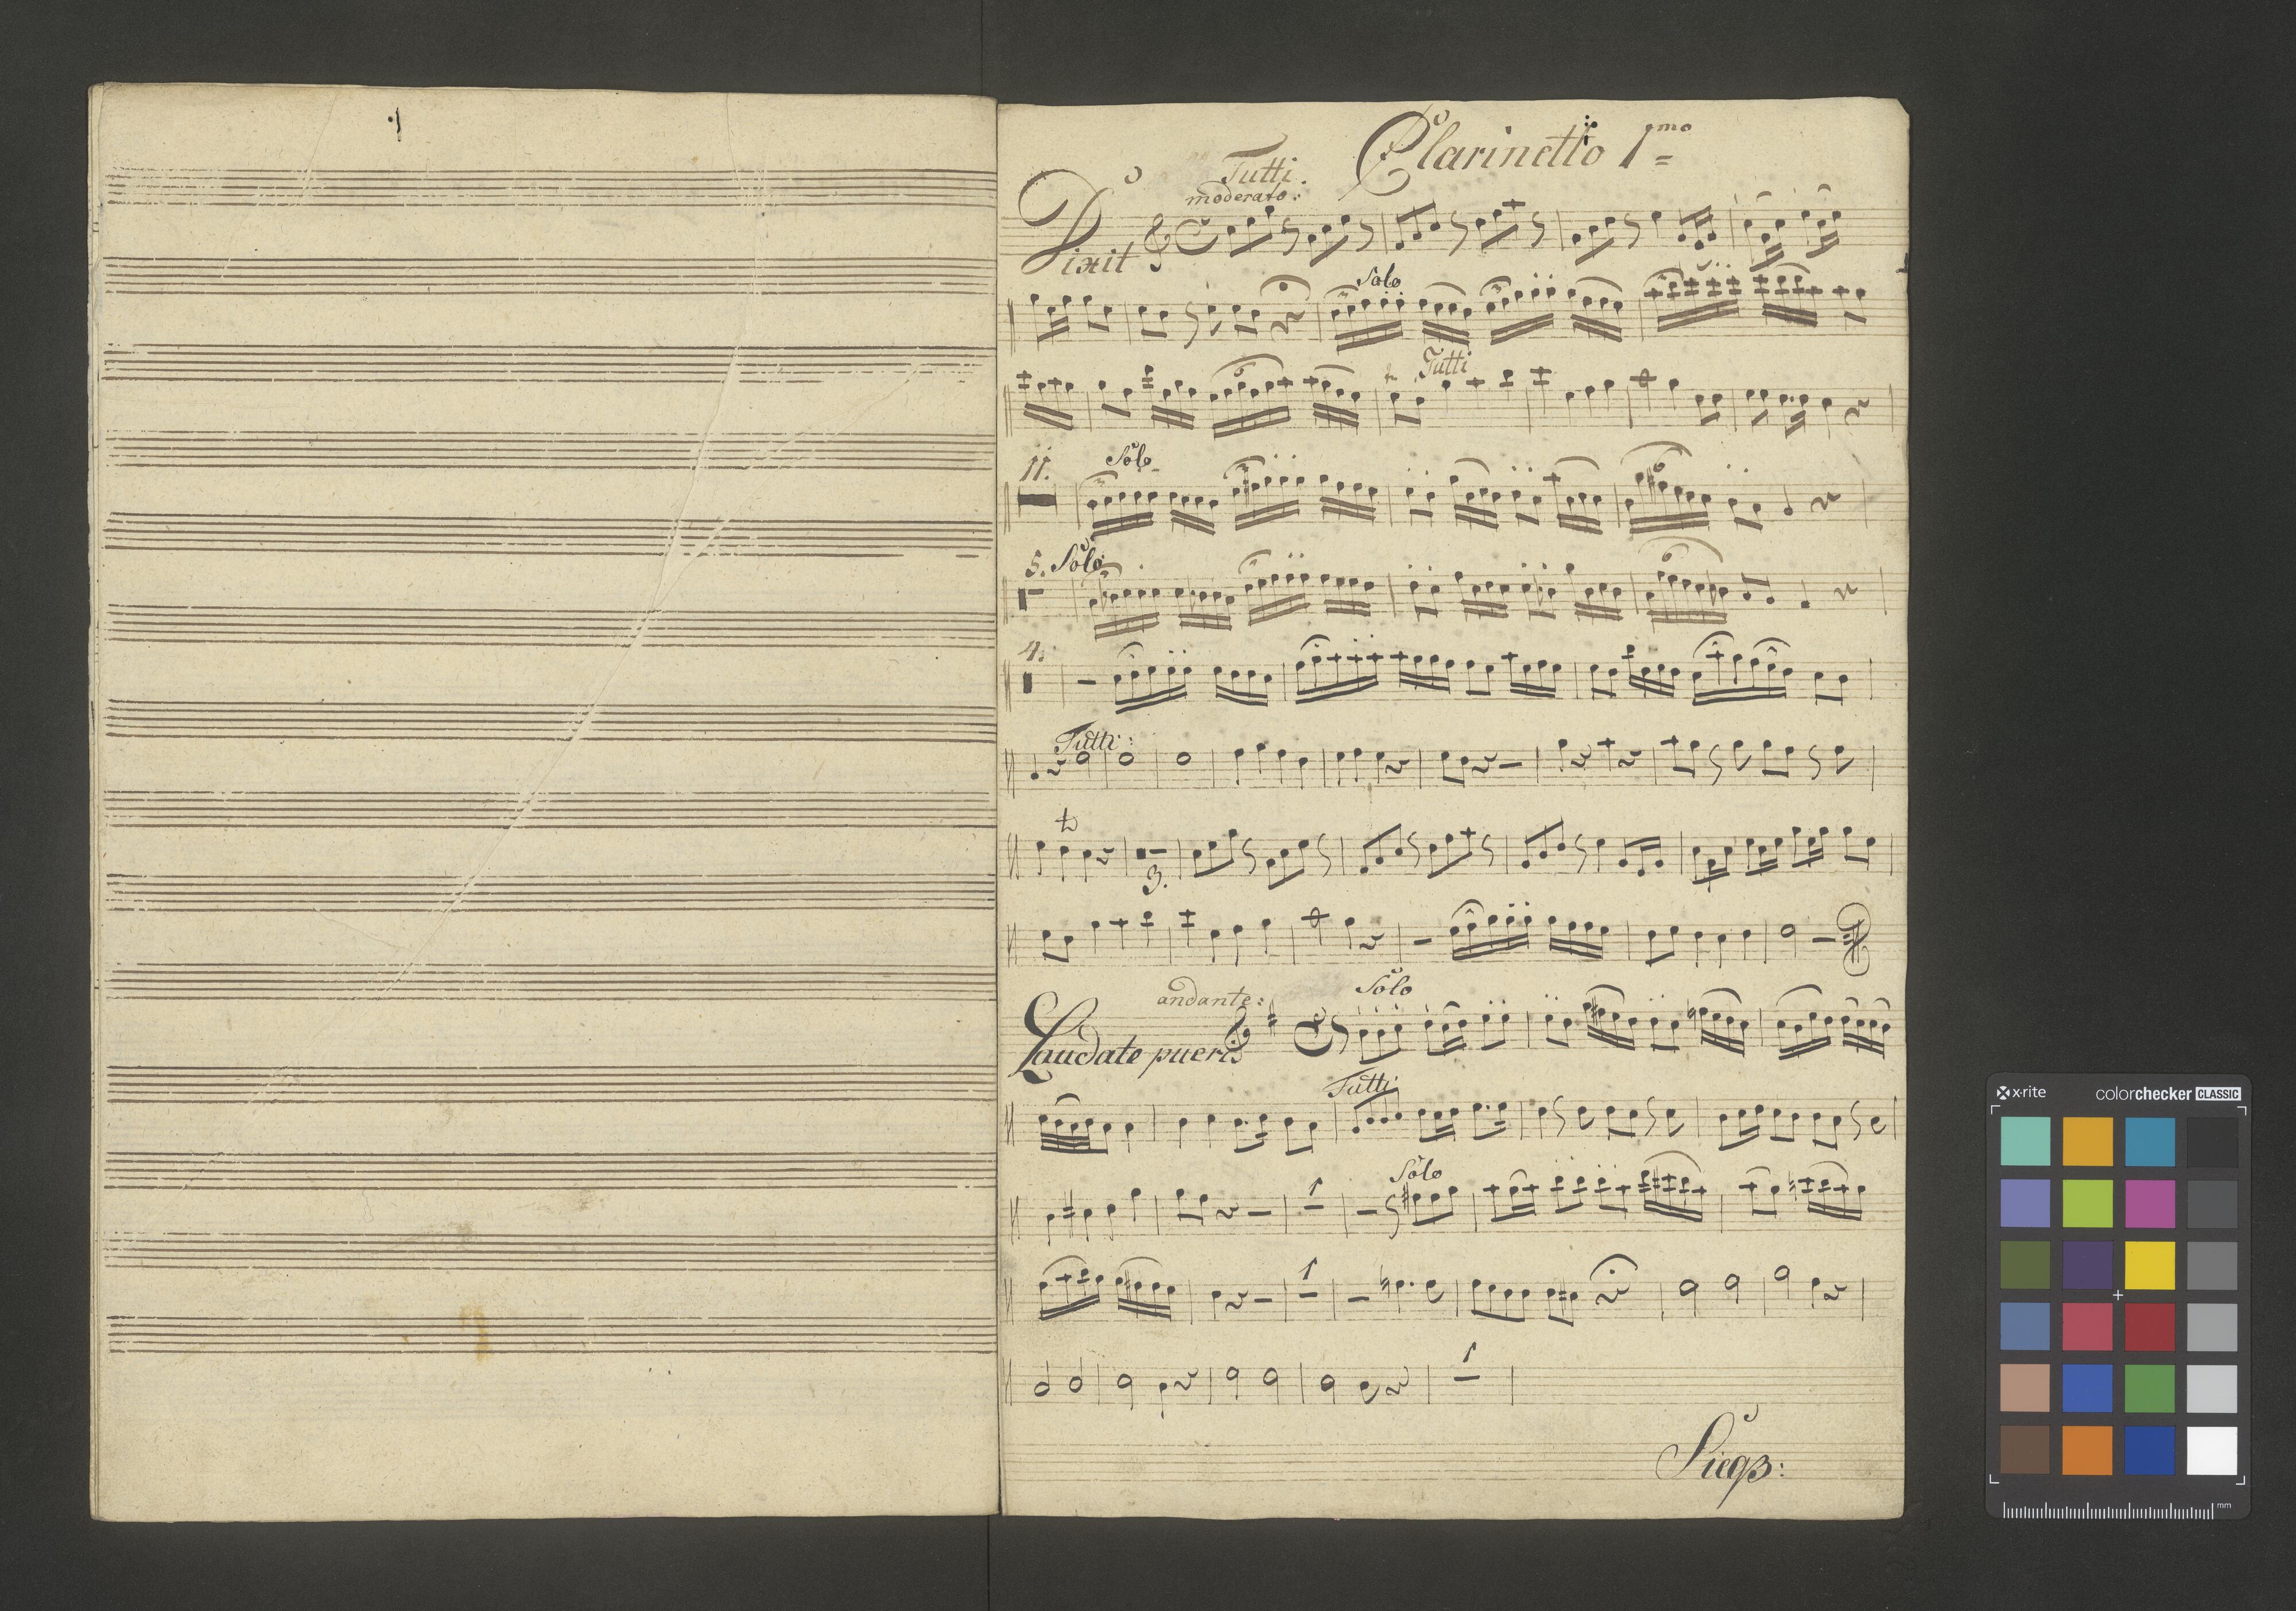 Clarinetto 1mo
Tutti.
moderato:
Dixit
Solo
3
6
Tutti
11.
Solo
6
5. Solo:
6
4.
Tutti:
3.
andante:
Solo
Laudate pueri
Tutti
Solo
1
1
1
x·rite colorchecker CLASSIC
mm